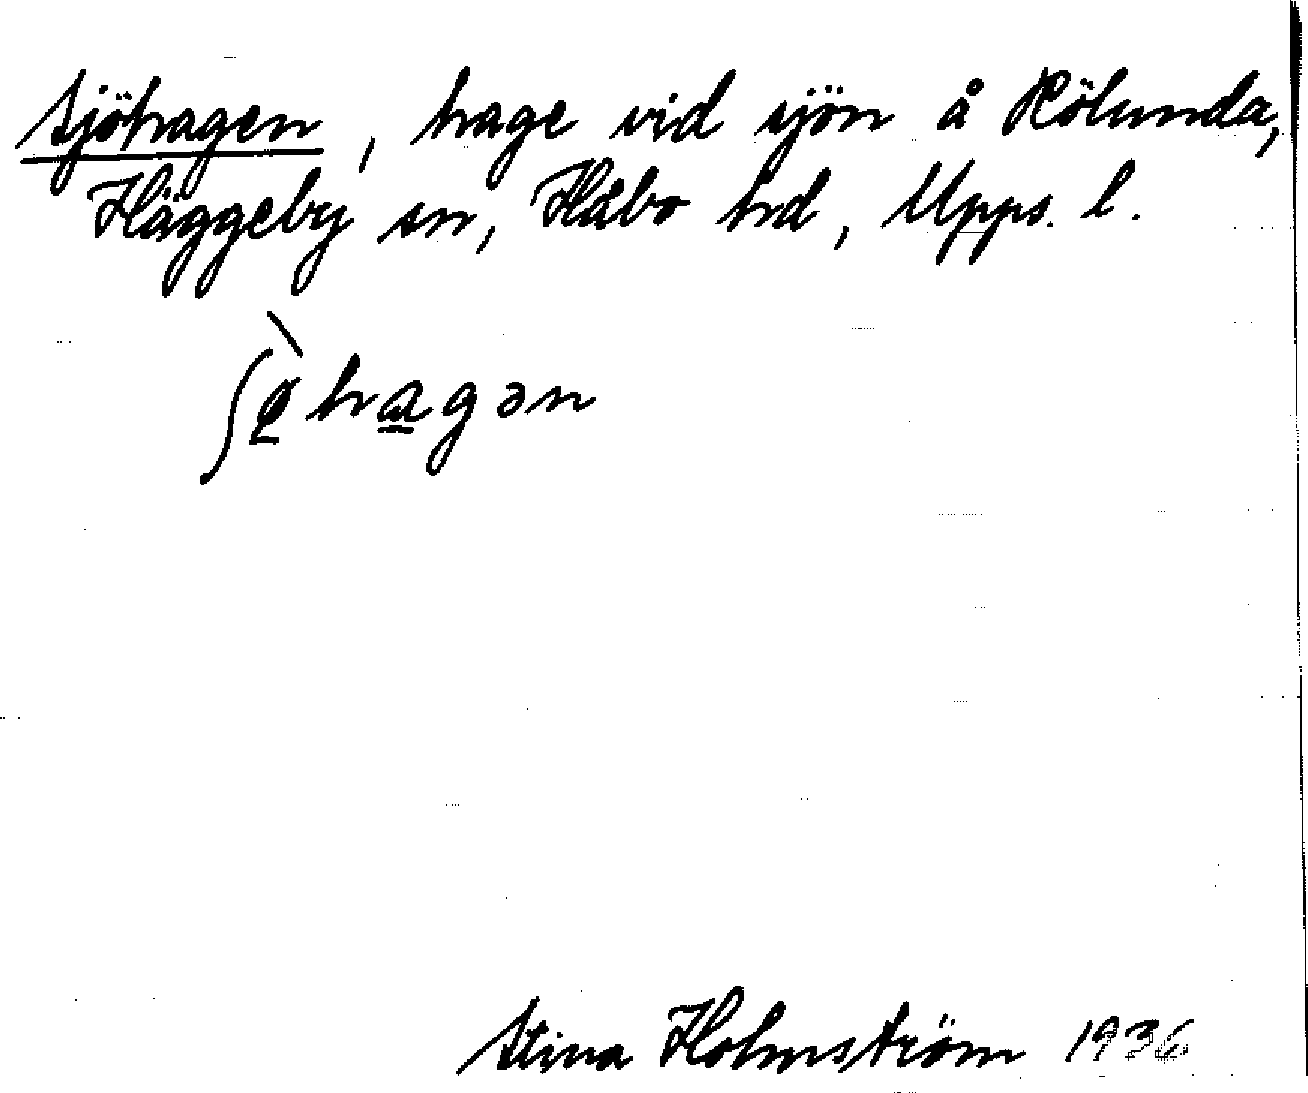 Sjöhagen, hage vid sjön å Kölunda,
Häggeby sn, Håbo hd, Upps. l.
ʃø̀hagən
Stina Holmström 1936